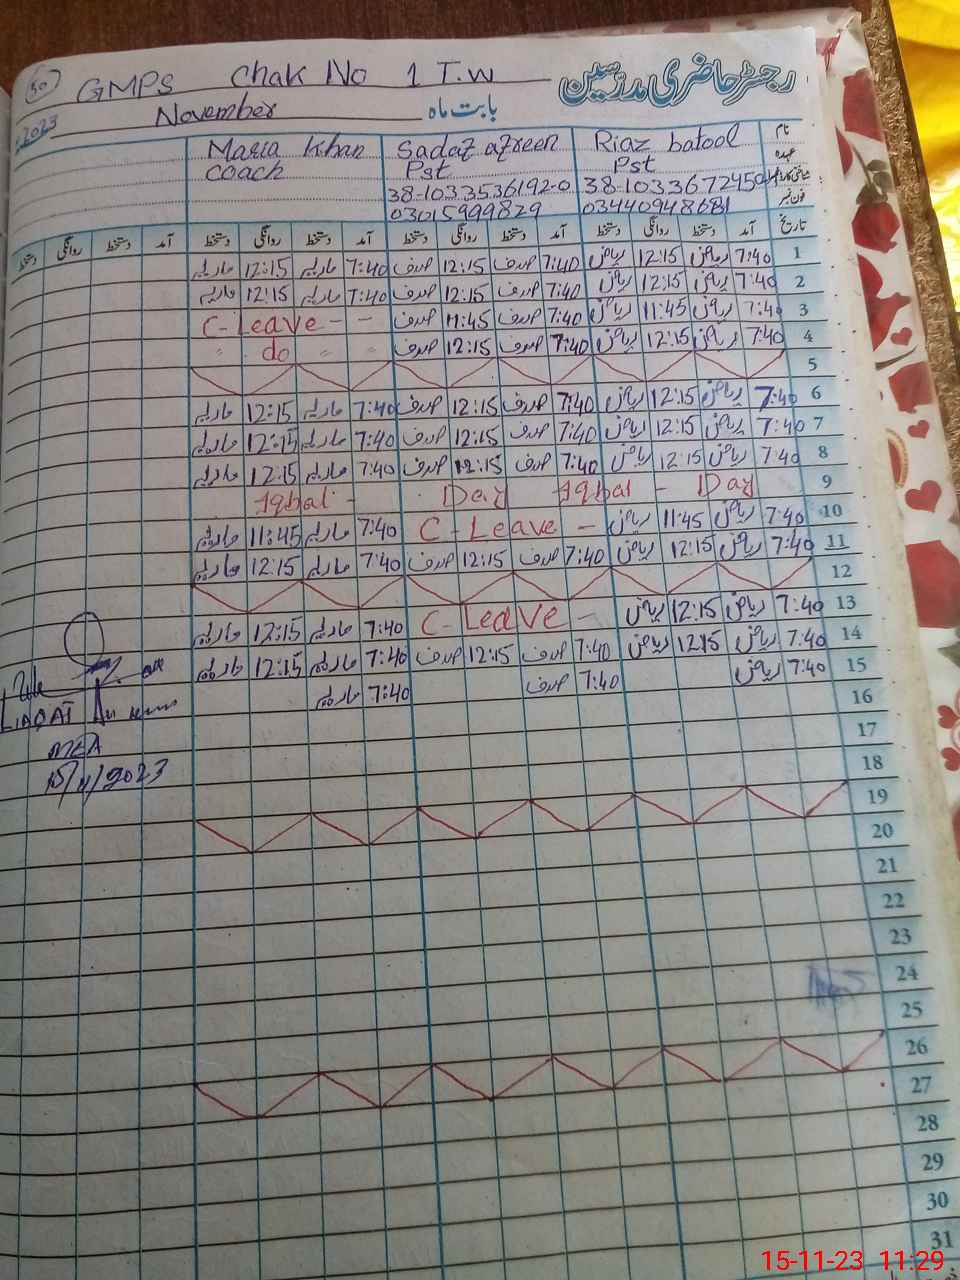 30
GMPS Chak No 1 T.W
رجسٹر حاضری مدرسین
2023
November
بابت ماہ
نام Riaz batool Sadaf afreen Maria Khan
عہدہ Pst Pst Coach
شناختی کارڈ نمبر 38-103367245 38-1033536192-0
فون نمبر 03440948681 03015999829
تاریخ آمد دستخط روانگی دستخط آمد دستخط روانگی دستخط آمد دستخط روانگی دستخط آمد دستخط روانگی دستخط
1 7:40 ریاض 12:15 ریاض 7:40 صدف 12:15 صدف 7:40 ماریہ 12:15 ماریہ
2 7:40 ریاض 12:15 ریاض 7:40 صدف 12:15 صدف 7:40 ماریہ 12:15 ماریہ
3 7:40 ریاض 11:45 ریاض 7:40 صدف 11:45 صدف C-Leave - -
4 7:40 ریاض 12:15 ریاض 7:40 صدف 12:15 صدف " do " "
5
6 7:40 ریاض 12:15 ریاض 7:40 صدف 12:15 صدف 7:40 ماریہ 12:15 ماریہ
7 7:40 ریاض 12:15 ریاض 7:40 صدف 12:15 صدف 7:40 ماریہ 12:15 ماریہ
8 7:40 ریاض 12:15 ریاض 7:40 صدف 12:15 صدف 7:40 ماریہ 12:15 ماریہ
9 Iqbal - Day Iqbal - Day
10 7:40 ریاض 11:45 ریاض C-Leave - 7:40 ماریہ 11:45 ماریہ
11 7:40 ریاض 12:15 ریاض 7:40 صدف 12:15 صدف 7:40 ماریہ 12:15 ماریہ
12
13 7:40 ریاض 12:15 ریاض C-Leave - 7:40 ماریہ 12:15 ماریہ
14 7:40 ریاض 12:15 ریاض 7:40 صدف 12:15 صدف 7:40 ماریہ 12:15 ماریہ
15 7:40 ریاض 7:40 صدف 7:40 ماریہ
16
LIAQAT Ali
MEA
15/11/2023
17
18
19
20
21
22
23
24
25
26
27
28
29
30
31
15-11-23 11:29